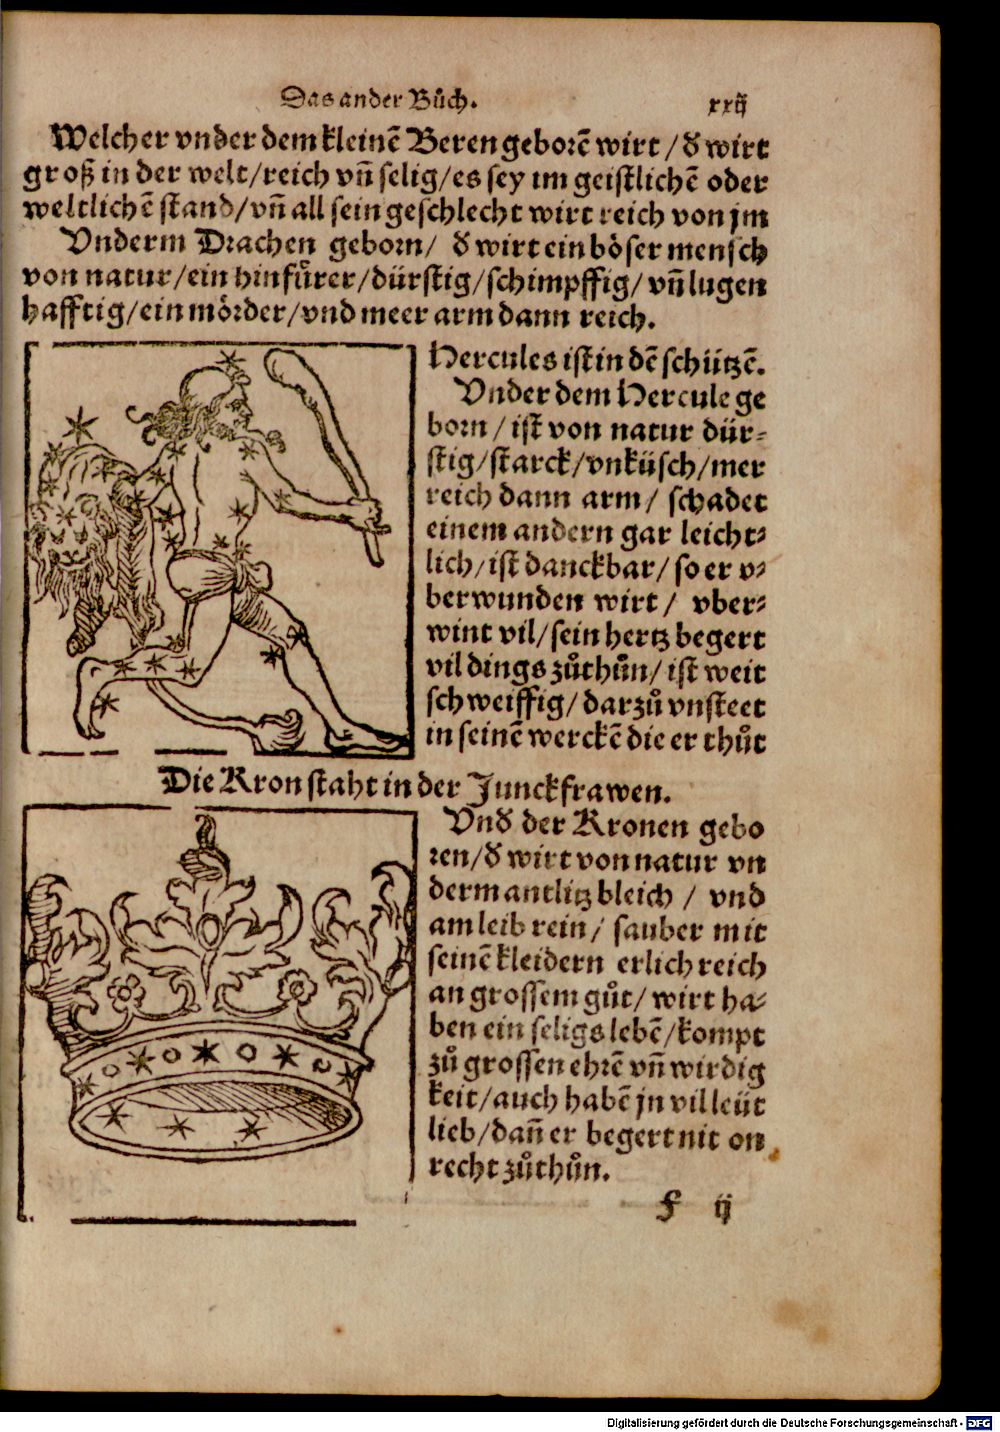 Das ander Bůch. xxij
Welcher vnder dem kleinẽ Beren geborẽ wirt / ð wirt
groß in der welt/reich vñ selig/es sey im geistlichẽ oder
weltlichẽ stand/vñ all sein geschlecht wirt reich von jm
Vnderm Drachen geborn/ ð wirt ein böser mensch
von natur/ein hinfůrer/dürstig/schimpffig/ vñ lugen
hafftig/ein mörder/vnd meer arm dann reich.
Hercules ist in dẽ schützẽ.
Vnder dem Hercule ge
born / ist von natur dür⸗
stig/starck/vnküsch/mer
reich dann arm/ schadet
einem andern gar leicht⸗
lich/ist danckbar/ so er v⸗
berwunden wirt/ vber⸗
wint vil/sein hertz begert
vil dings zůthůn/ist weit
schweiffig/darzů vnsteet
in seinẽ werckẽ die er thůt
Die Kron staht in der Junckfrawen.
Vnð der Kronen gebo
ren/ð wirt von natur vn
derm antlitz bleich / vnd
am leib rein/ sauber mit
seinẽ kleidern erlich reich
an grossem gůt/ wirt ha⸗
ben ein seligs lebẽ/kompt
zů grossen ehrẽ vñ wirdig
keit/auch habẽ jn vil leüt
lieb/dañ er begert nit on
recht zůthůn.
f ij
Digitalisierung gefördert durch die Deutsche Forschungsgemeinschaft - DFG